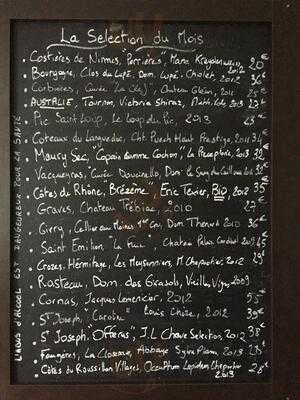 La Selection du Mois
• Costières de Nimes, "Perrières", Marc Kreydenweiss, 20€
• Bourgogne, Clos du Lupé, Dom. Lupé-Cholet, 2012
• Corbières, Cuvée "La Clef", Chateau 2011 25€
• AUSTRALIE, Tournon, Victoria Shiraz, 2013
• Pic Saint Loup, Le Loup du Pic, 2013 28€
• Coteaux du Languedoc, Cht. Puech Haut Prestige, 2011 34€
• Macvy Sec, "Copain comme Cochon", La Preceptorie, 2013 32€
• Vacqueyras, Cuvée Doucinello, Dom. Le Sang des Cailloux 32€
• Côtes du Rhône, Brézème, Eric Texier, Bio, 2012 35
• Graves, Chateau Trébiac, 2010 29
• Givry, Cellier aux Moines 1er Cru, Dom Thenard 2010 36€
• Saint Emilion, Chateau 2012 45
• Crozes. Hermitage, Les Meysonniers, M. Chapoutier, 2012 29€
• Rasteau, Dom. des Girasols, Vieilles Vignes, 2009
• Cornas, Jacques Lemencier, 2012 55€
• St Joseph, Louis Cheze, 2012 39€
• St Joseph "Offerus", J.L Chave Selection, 2012 38€
• Faugères, La Closerie, Abbaye Sylva Plana, 2013 28€
• Côtes du Roussillon Villages, Occultum Lapidem Chapoutier 2013 28€
L'ABUS D'ALCOOL EST DANGEUREUX POUR LA SANTÉ